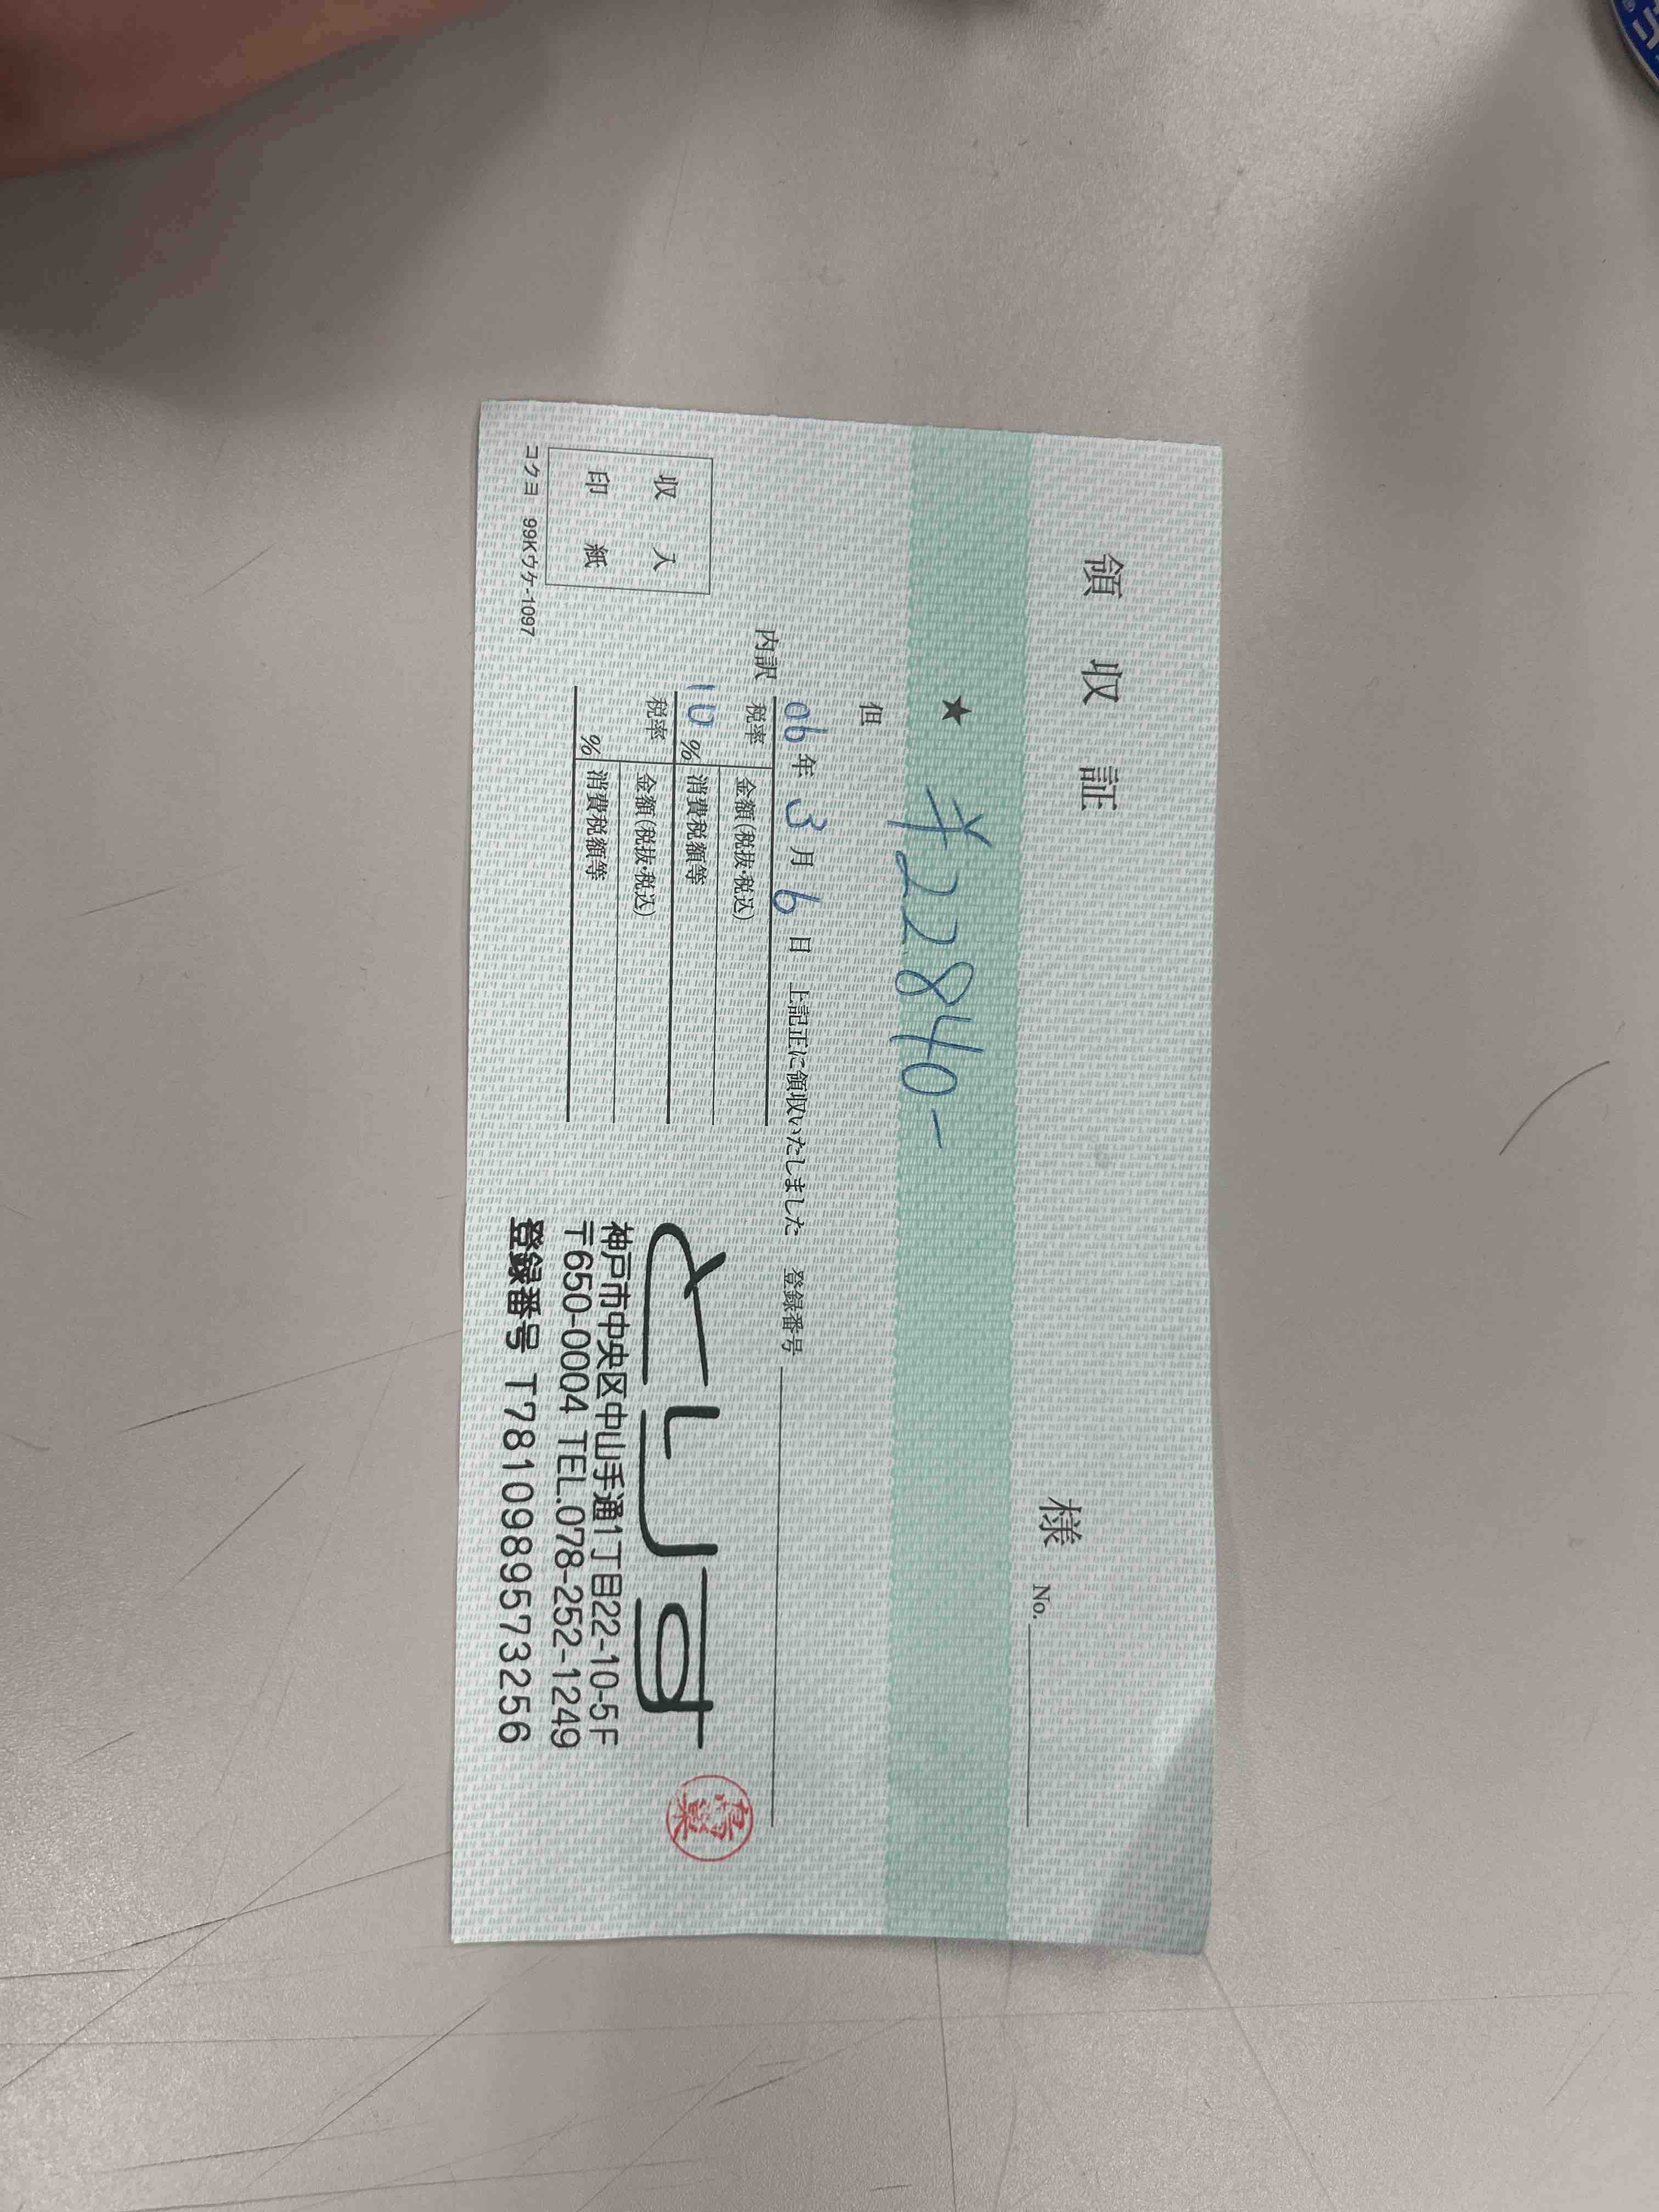 領収証
様 No.
★ ¥22840-
但
06年3月6日 上記正に領収いたしました 登録番号
内訳
税率 金額(税抜・税込)
10% 消費税額等
税率 金額(税抜・税込)
% 消費税額等
収入
印紙
コクヨ 99Kウケ-1097
とりす
神戸市中央区中山手通1丁目22-10-5F
〒650-0004 TEL.078-252-1249
登録番号 T7810989573256